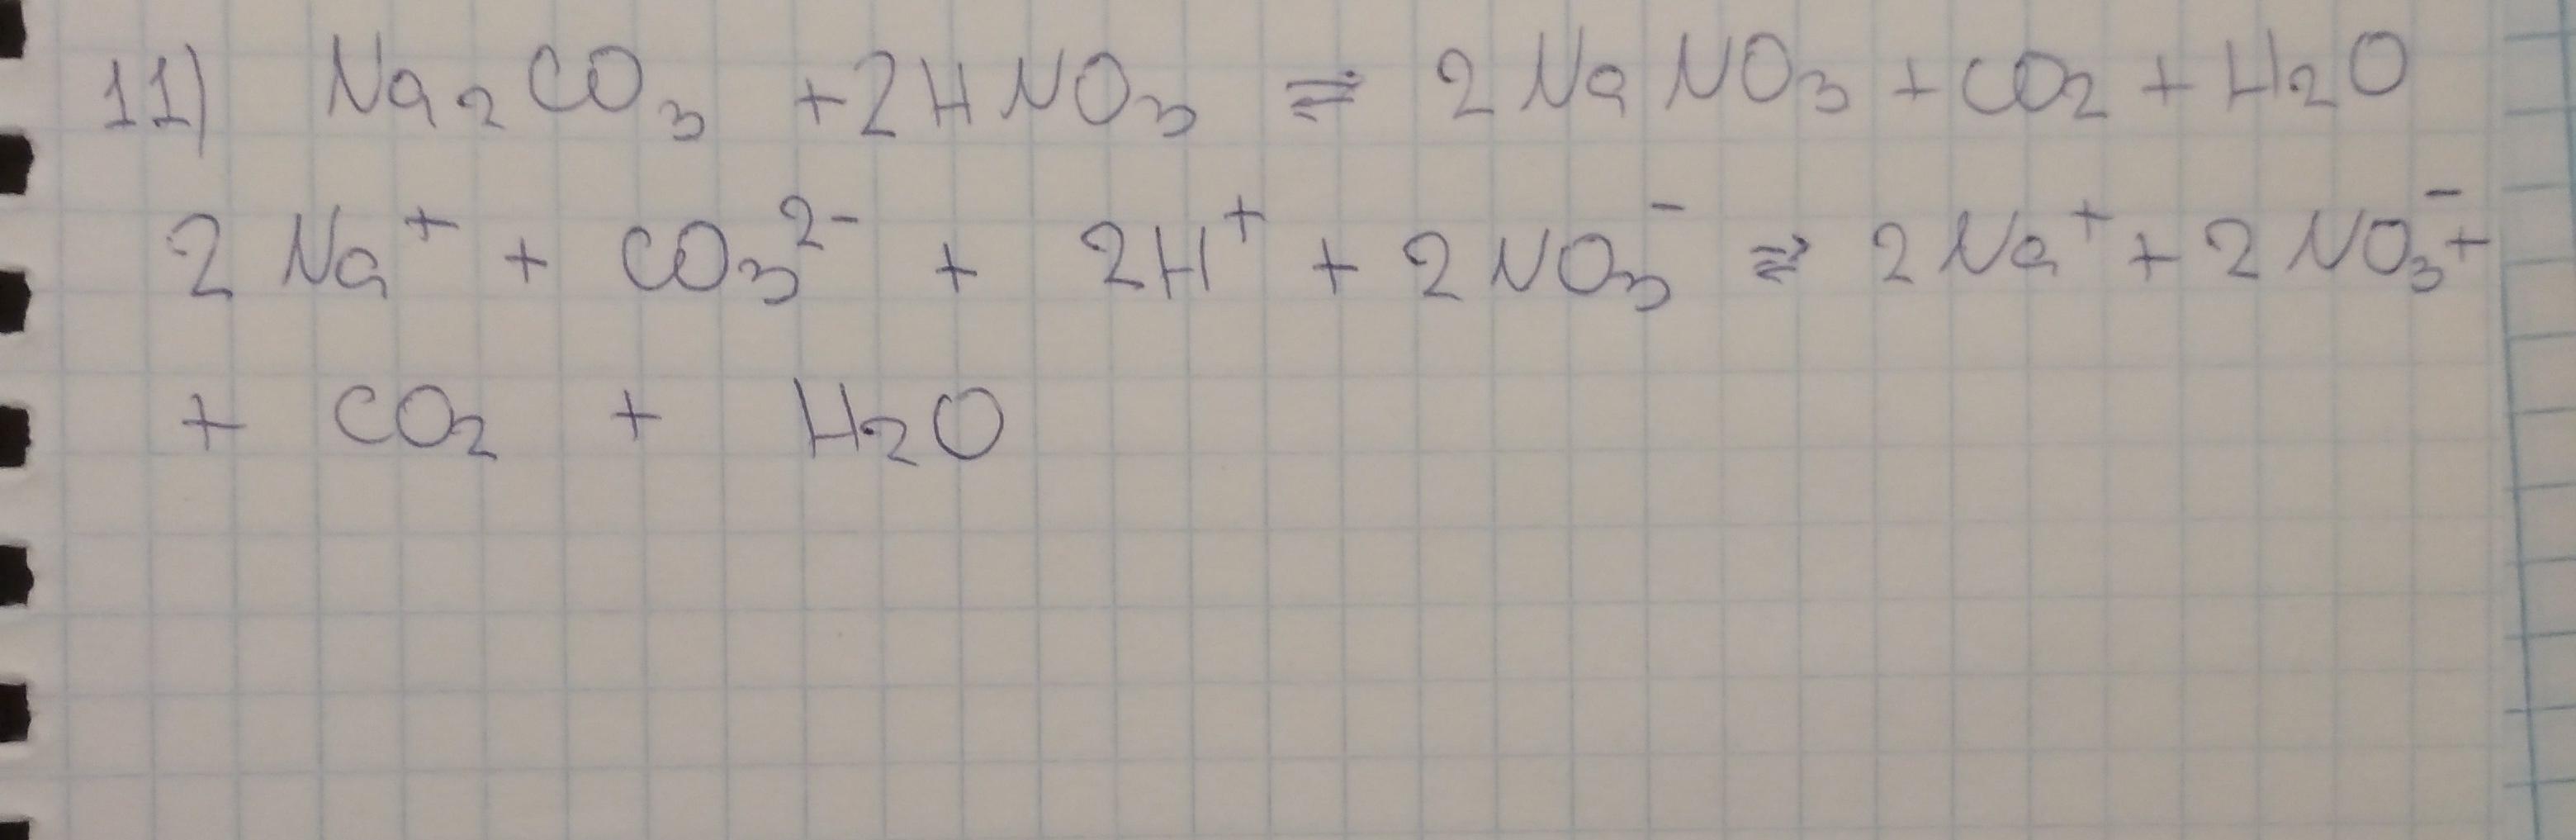 11) Na₂CO₃ + 2HNO₃ ⇌ 2NaNO₃ + CO₂ + H₂O
2Na⁺ + CO₃²⁻ + 2H⁺ + 2NO₃⁻ ⇌ 2Na⁺ + 2NO₃⁻ +
+ CO₂ + H₂O